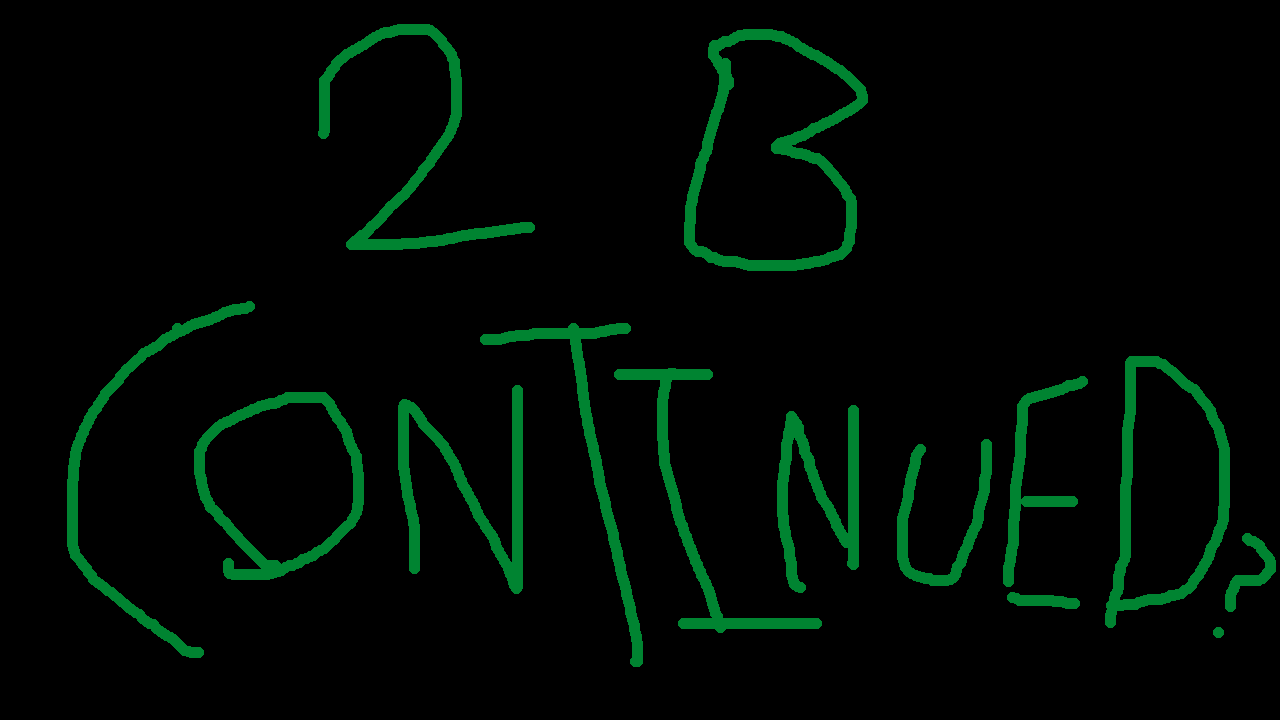 2 B
CONTINUED?